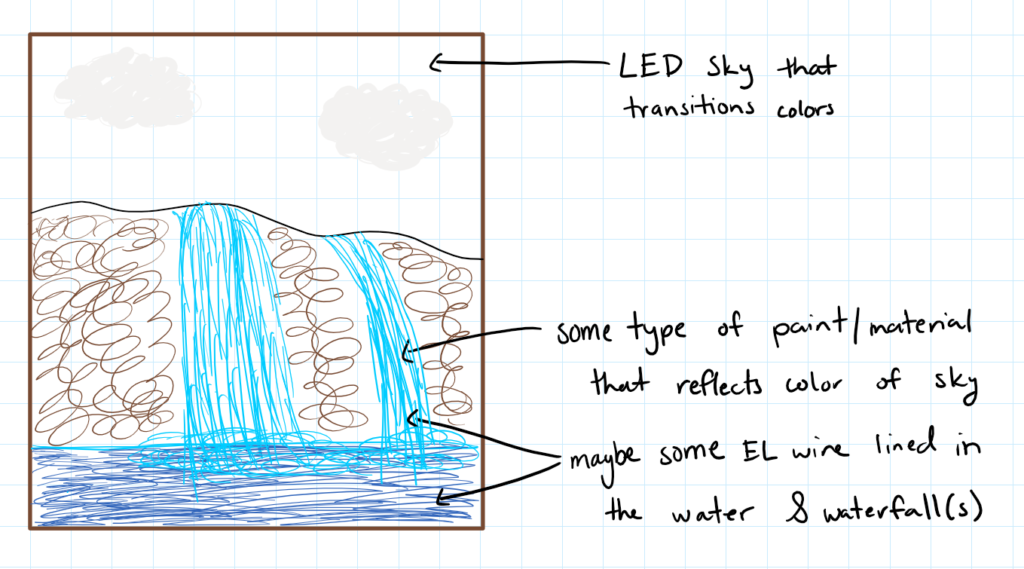 LED sky that
transitions colors
some type of paint/material
that reflects color of sky
maybe some EL wire lined in
the water & waterfall(s)